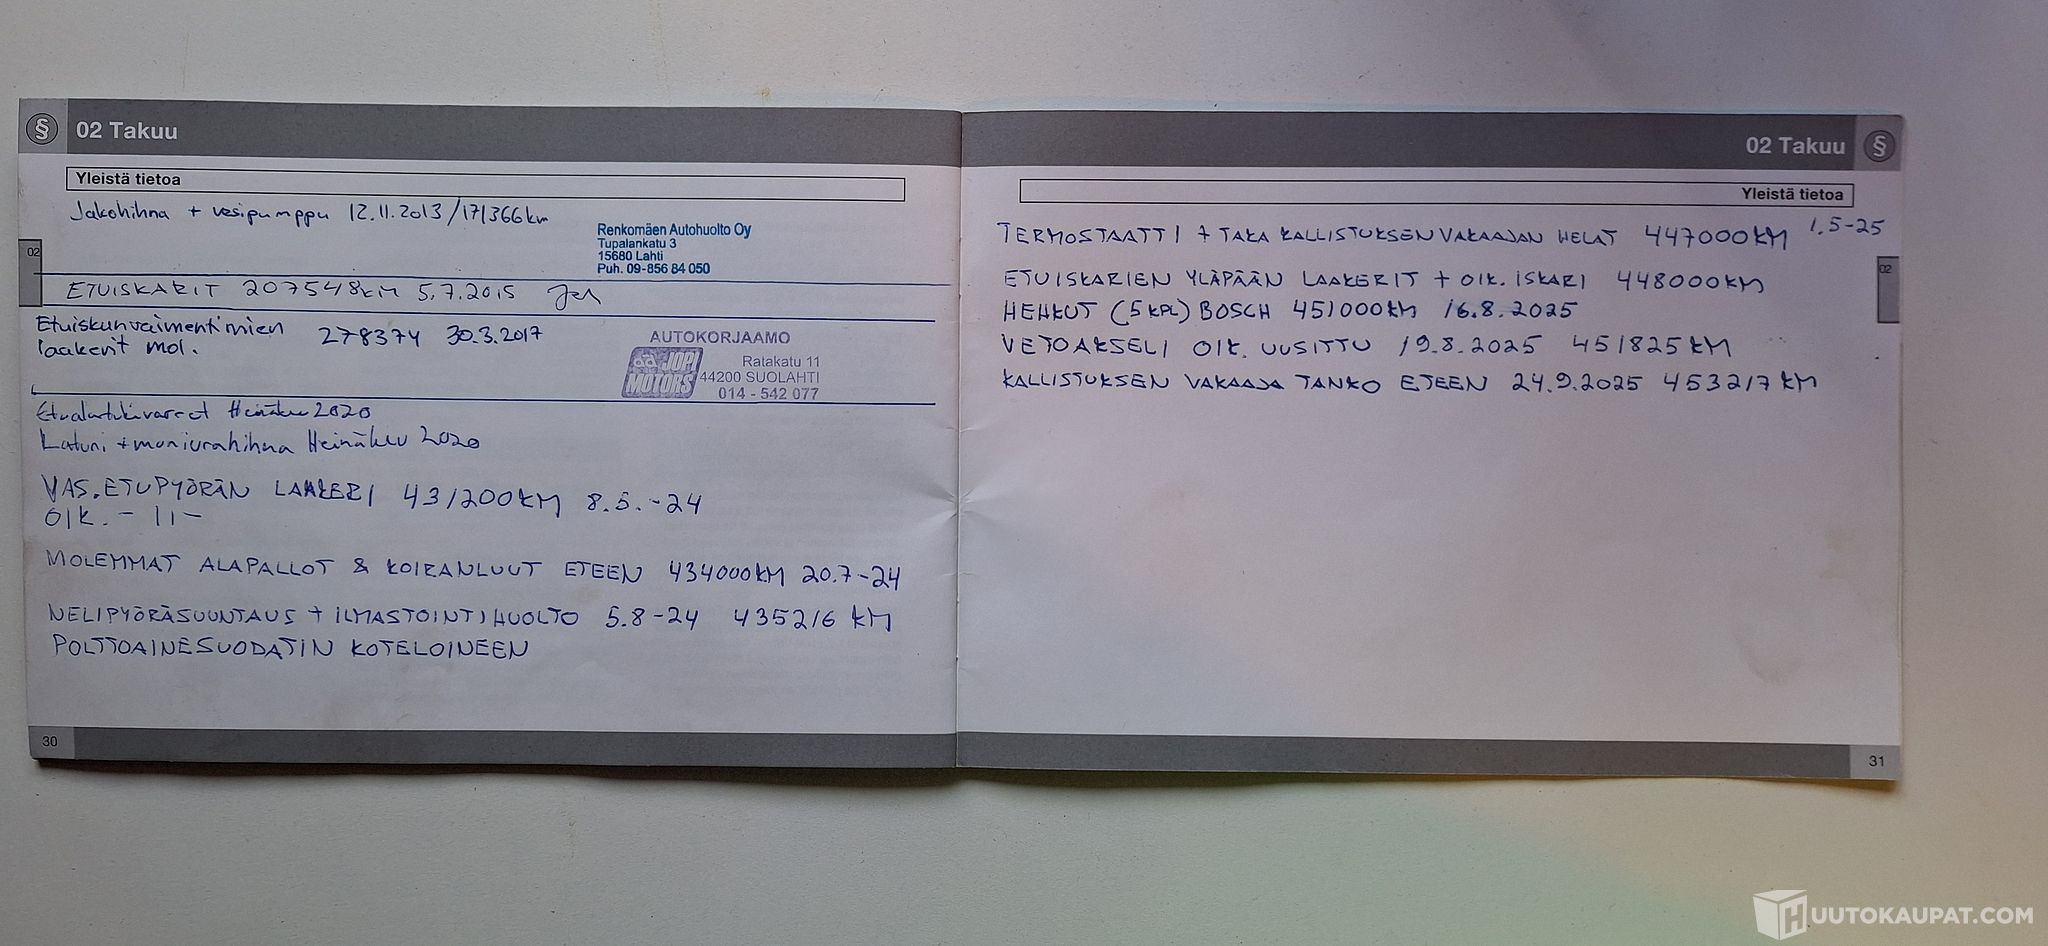 § 02 Takuu
Yleistä tietoa
Jakohihna + vesipumppu 12.11.2013/171366km
Renkomäen Autohuolto Oy
Tupalankatu 3
15680 Lahti
Puh. 09-856 84 050
02
ETUISKARIT 207548KM 5.7.2015
Etuiskunvaimentimien
laakerit mol. 278374 30.3.2017
AUTOKORJAAMO
JOPI
MOTORS
Ratakatu 11
44200 SUOLAHTI
014 - 542 077
Etualatukivarret Heinäkuu 2020
Laturi + moniurahihna Heinäkuu 2020
VAS. ETUPYÖRÄN LAAKERI 431200KM 8.5.-24
OIK. - 11 -
MOLEMMAT ALAPALLOT & KOIRANLUUT ETEEN 434000KM 20.7-24
NELIPYÖRÄSUUNTAUS + ILMASTOINTIHUOLTO 5.8-24 435216 KM
POLTTOAINESUODATIN KOTELOINEEN
30
02 Takuu §
Yleistä tietoa
TERMOSTAATTI + TAKA KALLISTUKSENVAKAAJAN HELAT 447000KM 1.5-25
02
ETUISKARIEN YLÄPÄÄN LAAKERIT + OIK. ISKARI 448000KM
HEHKUT (5 KPL) BOSCH 451000KM 16.8.2025
VETOAKSELI OIK. UUSITTU 19.8.2025 451825KM
KALLISTUKSEN VAKAAJA TANKO ETEEN 24.9.2025 453217 KM
31
HUUTOKAUPAT.COM